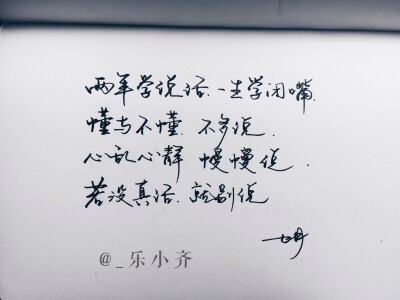 两年学说话.一生学闭嘴.
懂与不懂.不多说.
心乱心静 慢慢说.
若没真话.就别说
七井
@_乐小齐